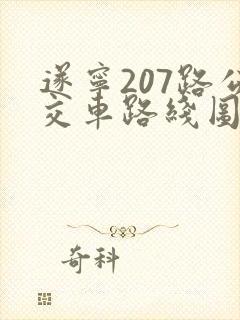 遂寧207路公
交車路綫圖
奇科